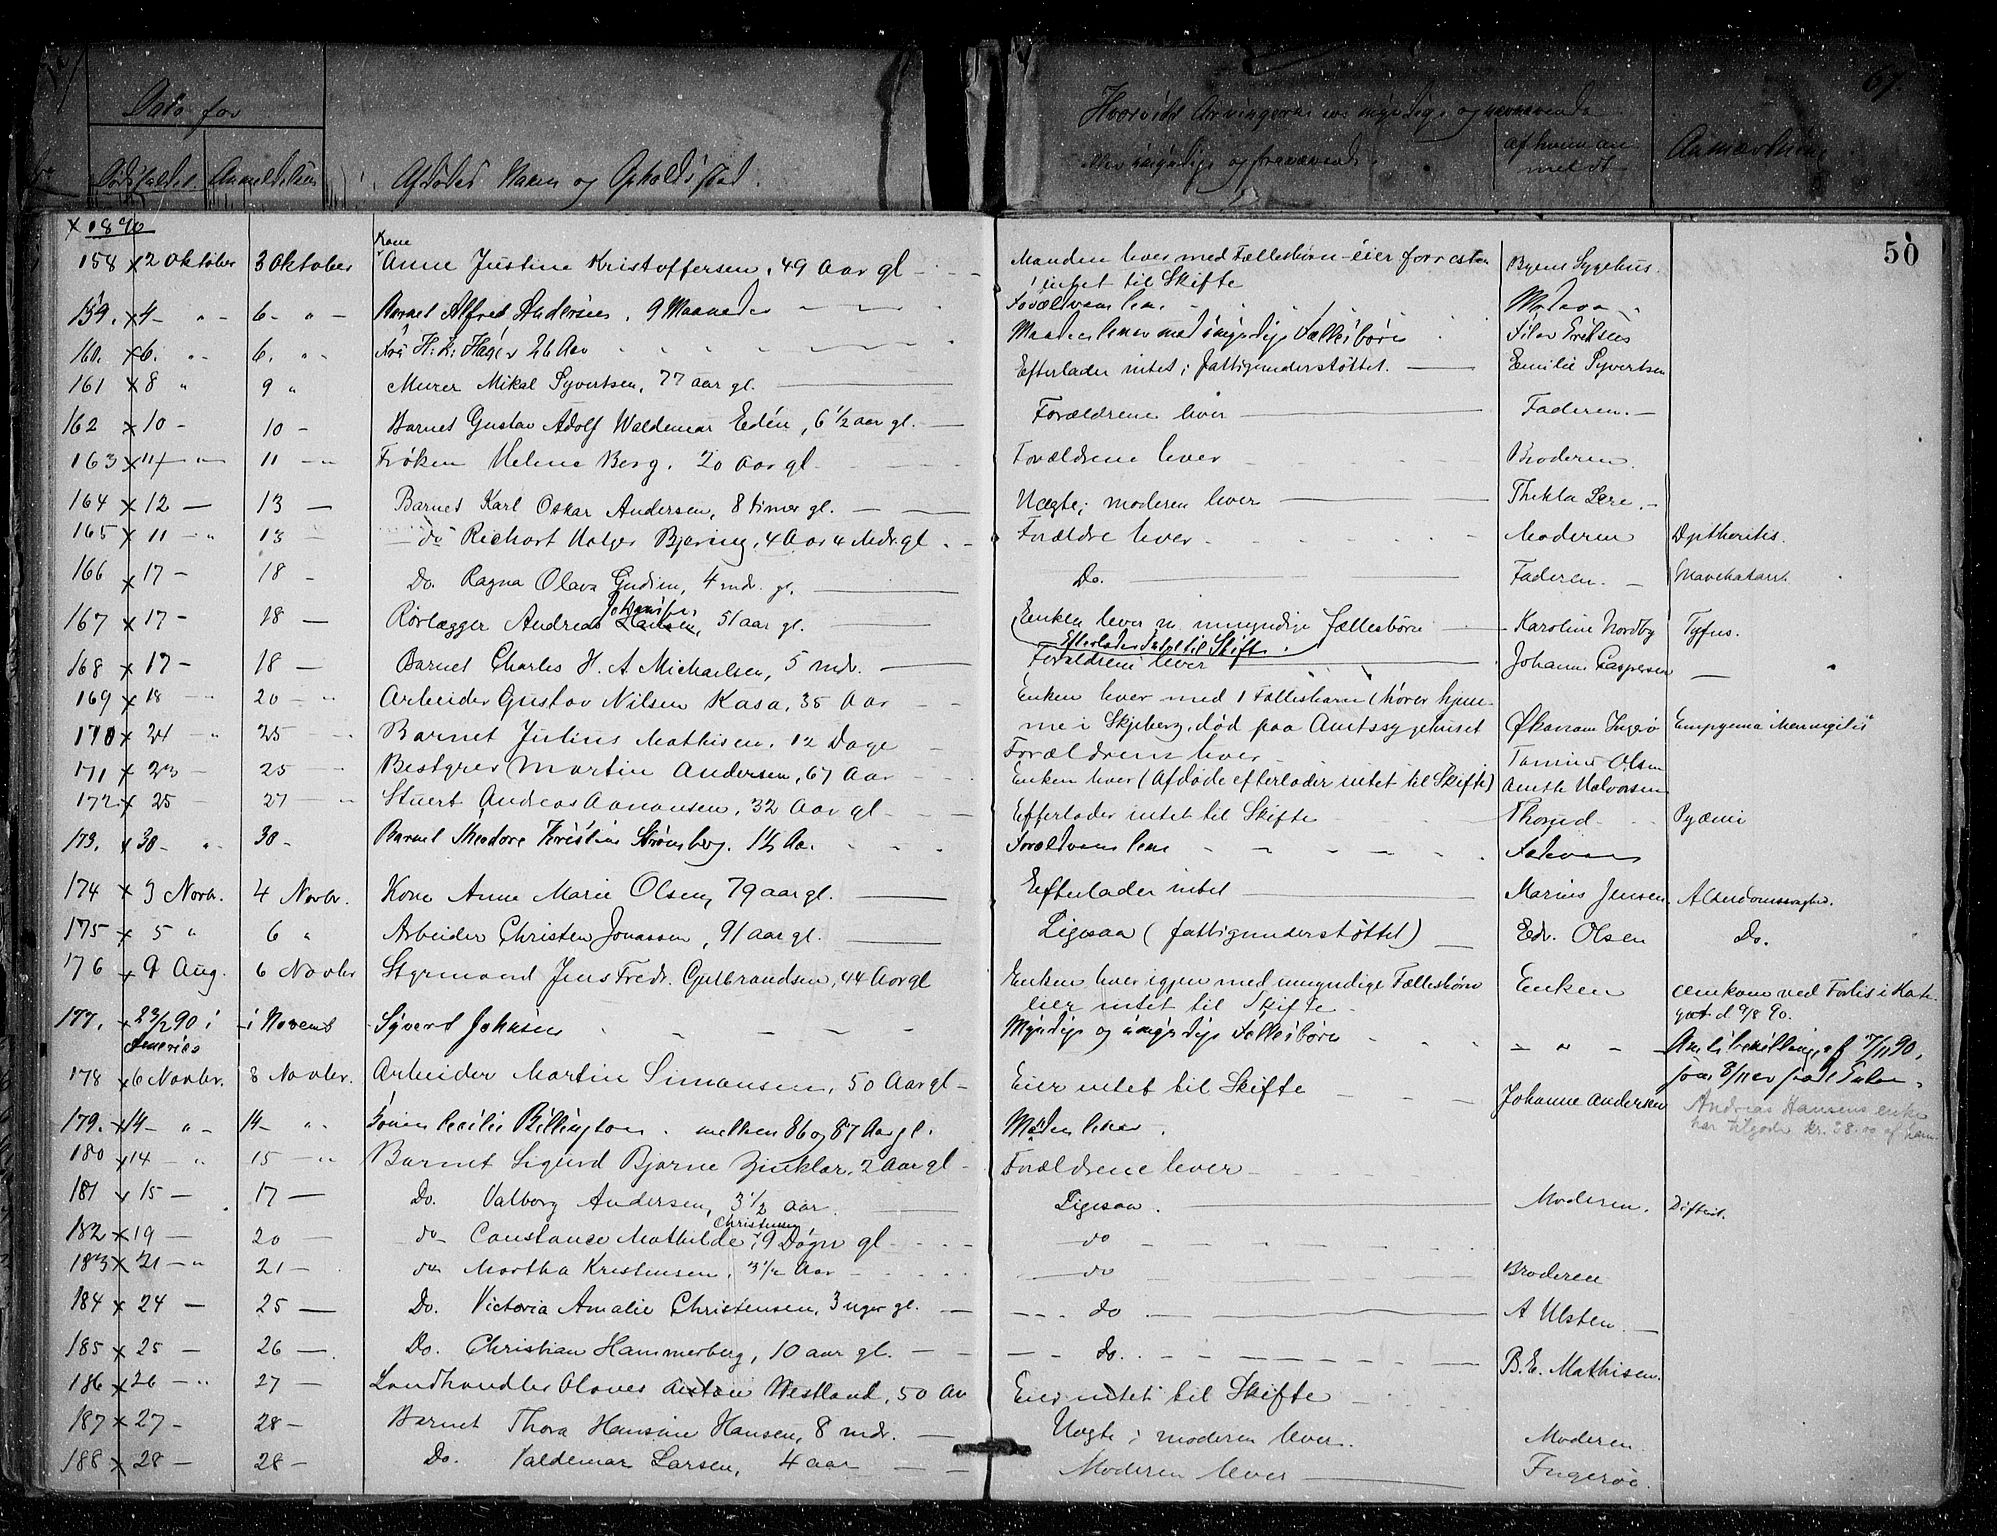 Dato for
Dødsfaldet. Anmeldelsen
Afdødes Navn og Opholdssted.
Hvorvidt Arvingerne ere myndige og nærværende
eller umyndige og fraværende.
af hvem an-
meldt
Anmærkning
67.
50
x 1890
158 x 2 Oktober 3 Oktober Kone Anne Justine Kristoffersen, 49 Aar gl Manden lever med Fællesbørn - eier forresten Byens Sygehus.
intet til Skifte
159. x 4 - " - 6 - " - Barnet Alfred Andersen, 9 Maaneder Forældrene leve
160. x 6. " - 6. " - Fru H. K. Hager 26 Aar Manden lever med umyndige Fællesbørn
161 x 8 " 9 " Murer Mikal Syvertsen, 77 aar gl. Efterlader intet; fattigunderstøttet. Emilie Syvertsen
162 x 10 - 10 - Barnet Gustav Adolf Waldemar Edén, 6 1/2 aar gl. Forældrene lever Faderen.
163 x 11 - " 11 - " Frøken Helene Berg. 20 Aar gl Forældrene lever Broderen.
164 x 12 - 13 - Barnet Karl Oskar Andersen, 8 timer gl. Uægte; moderen lever Thekla
165 x 11 - " 13 - do Richart Holger Bjering, 4 Aar 4 Mdr. gl. Forældre lever Moderen Dptheritis.
166 x 17 - 18 - Do. Ragna Olava Gudim, 4 mdr. gl. Do. Faderen. Mavekatarrh
167 x 17 - 18 - Rørlægger Andreas Johansen Hansen, 51 aar gl. Enken lever m. umyndige fællesbørn Karoline Nordby Tyfus.
Efterlader Intet til Skifte.
168 x 17 - 18 - Barnet Charles H. A. Michaelsen, 5 mdr. Forældrene lever Johanne Caspersen
169 x 18 - " 20 - " Arbeider Gustav Nilsen Kasa, 35 Aar Enken lever med 1 Fællesbarn (hører hjem-
me i Skjeberg, død paa Amtssygehuset Empyema "Meningitis"
170 x 24 - " 25 - " Barnet Julius Mathisen, 12 Dage Forældrene lever Olsen
171 x 23 - 25 - Bestyrer Martin Andersen, 67 Aar Enken lever (Afdøde efterlader intet til Skifte) Anette Halvorsen
172 x 25 - 27 - " Stuert Andreas Aanonsen, 32 Aar gl Efterlader intet til Skifte Pyæmi
173. x 30 - " 30 - Barnet Theodore Kristine Strømberg. 1 1/2 Aar Forældrene leve Faderen
174 x 3 Novbr. 4 Novbr. Kone Anne Marie Olsen, 79 aar gl. Efterlader intet Marius Jensen Alderdomssvaghed.
175 x 5 " 6 " Arbeider Christen Jonassen, 91 aar gl. Ligesaa (fattigunderstøttet) Edv. Olsen Do.
176 x 9 Aug. 6 Novbr Styrmand Jens Fredr. Gulbrandsen, 44 Aar gl Enken lever igjen med umyndige Fællesbørn Enken omkom ved Forlis i Kate-
eier intet til Skifte. gat d 9/8 90.
177. x 23/2 90 i Amerika i Novemb Syvert Johnsen Myndige og umyndige Fællesbørn - " -
178 x 6 Novbr. 8 Novbr. Arbeider Martin Simonsen, 50 Aar gl Eier intet til Skifte Johanne Andersen
Andreas Hansens enke
har tilgode kr. 28.00 af ham.
179. x 14 - " - 14 - " Cecilie Billington. mellem 86 og 87 Aar gl. Manden lever.
180 x 14 - " 15 - " Barnet Sigurd Bjarne Zinklar, 2 Aar gl Forældrene lever
181 x 15 - 17 - Do. Valborg Andersen, 3 1/2 aar. Ligesaa. Moderen. Difterit.
182 x 19 - 20 - do Constance Mathilde Christensen, 9 Døgn gl do
183 x 21 - " 21 - do Martha Kristensen, 3 1/2 Aar do Broderen
184 x 24 - 25 - Do. Victoria Amalie Christensen, 3 uger gl. do A Ulsten.
185 x 25 - 26 - Do. Christian Hammerberg, 10 aar gl. Do. B. E. Mathisen.
186 x 26 - " 27 - Landhandler Olaves Anton Vestland, 50 Aar Eier intet til Skifte
187 x 27 - 28 - Barnet Thora Hansine Hansen, 8 mdr. Uægte; moderen lever. Moderen.
188 x 28 - 28 - Do. Valdemar Larsen, 4 aar Moderen lever Ingerøe.